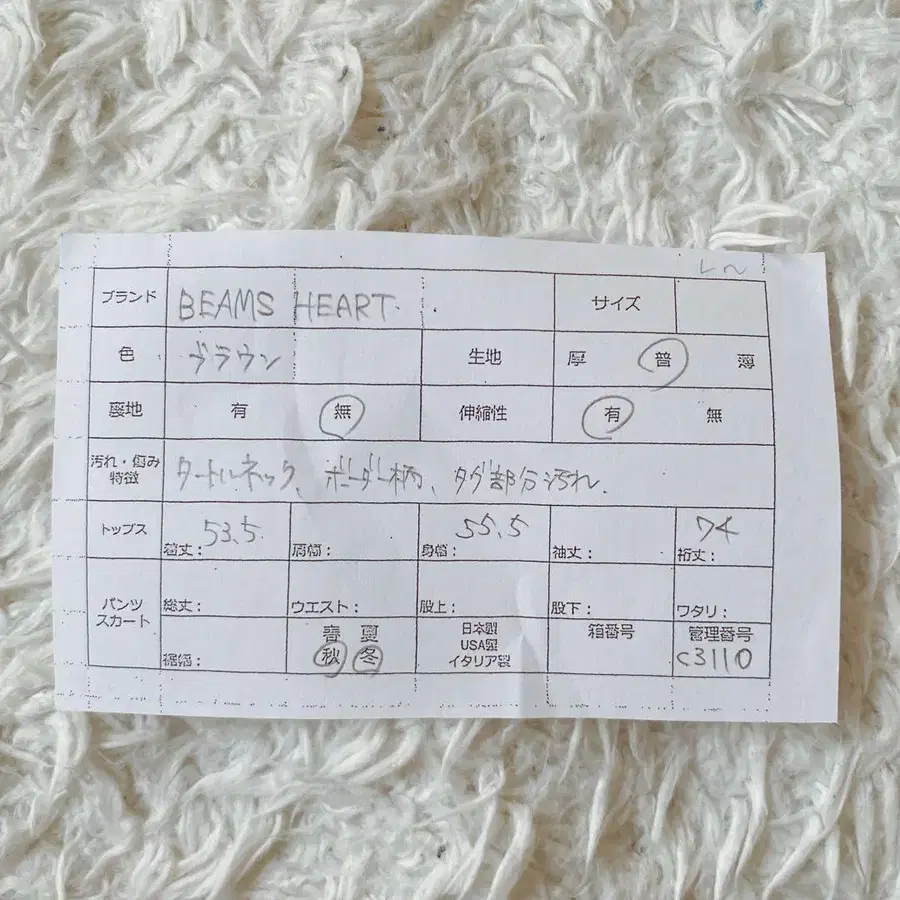 ブランド BEAMS HEART. サイズ
色 ブラウン 生地 厚 普 薄
裏地 有 無 伸縮性 有 無
汚れ・傷み
特徴 タートルネック、ボーダー柄、タグ部分汚れ.
トップス 着丈: 53.5 肩幅: 身幅: 55.5 袖丈: 裄丈: 74
パンツ
スカート 総丈: ウエスト: 股上: 股下: ワタリ:
裾幅: 春 夏
秋 冬
日本製
USA製
イタリア製
箱番号
管理番号
C3110